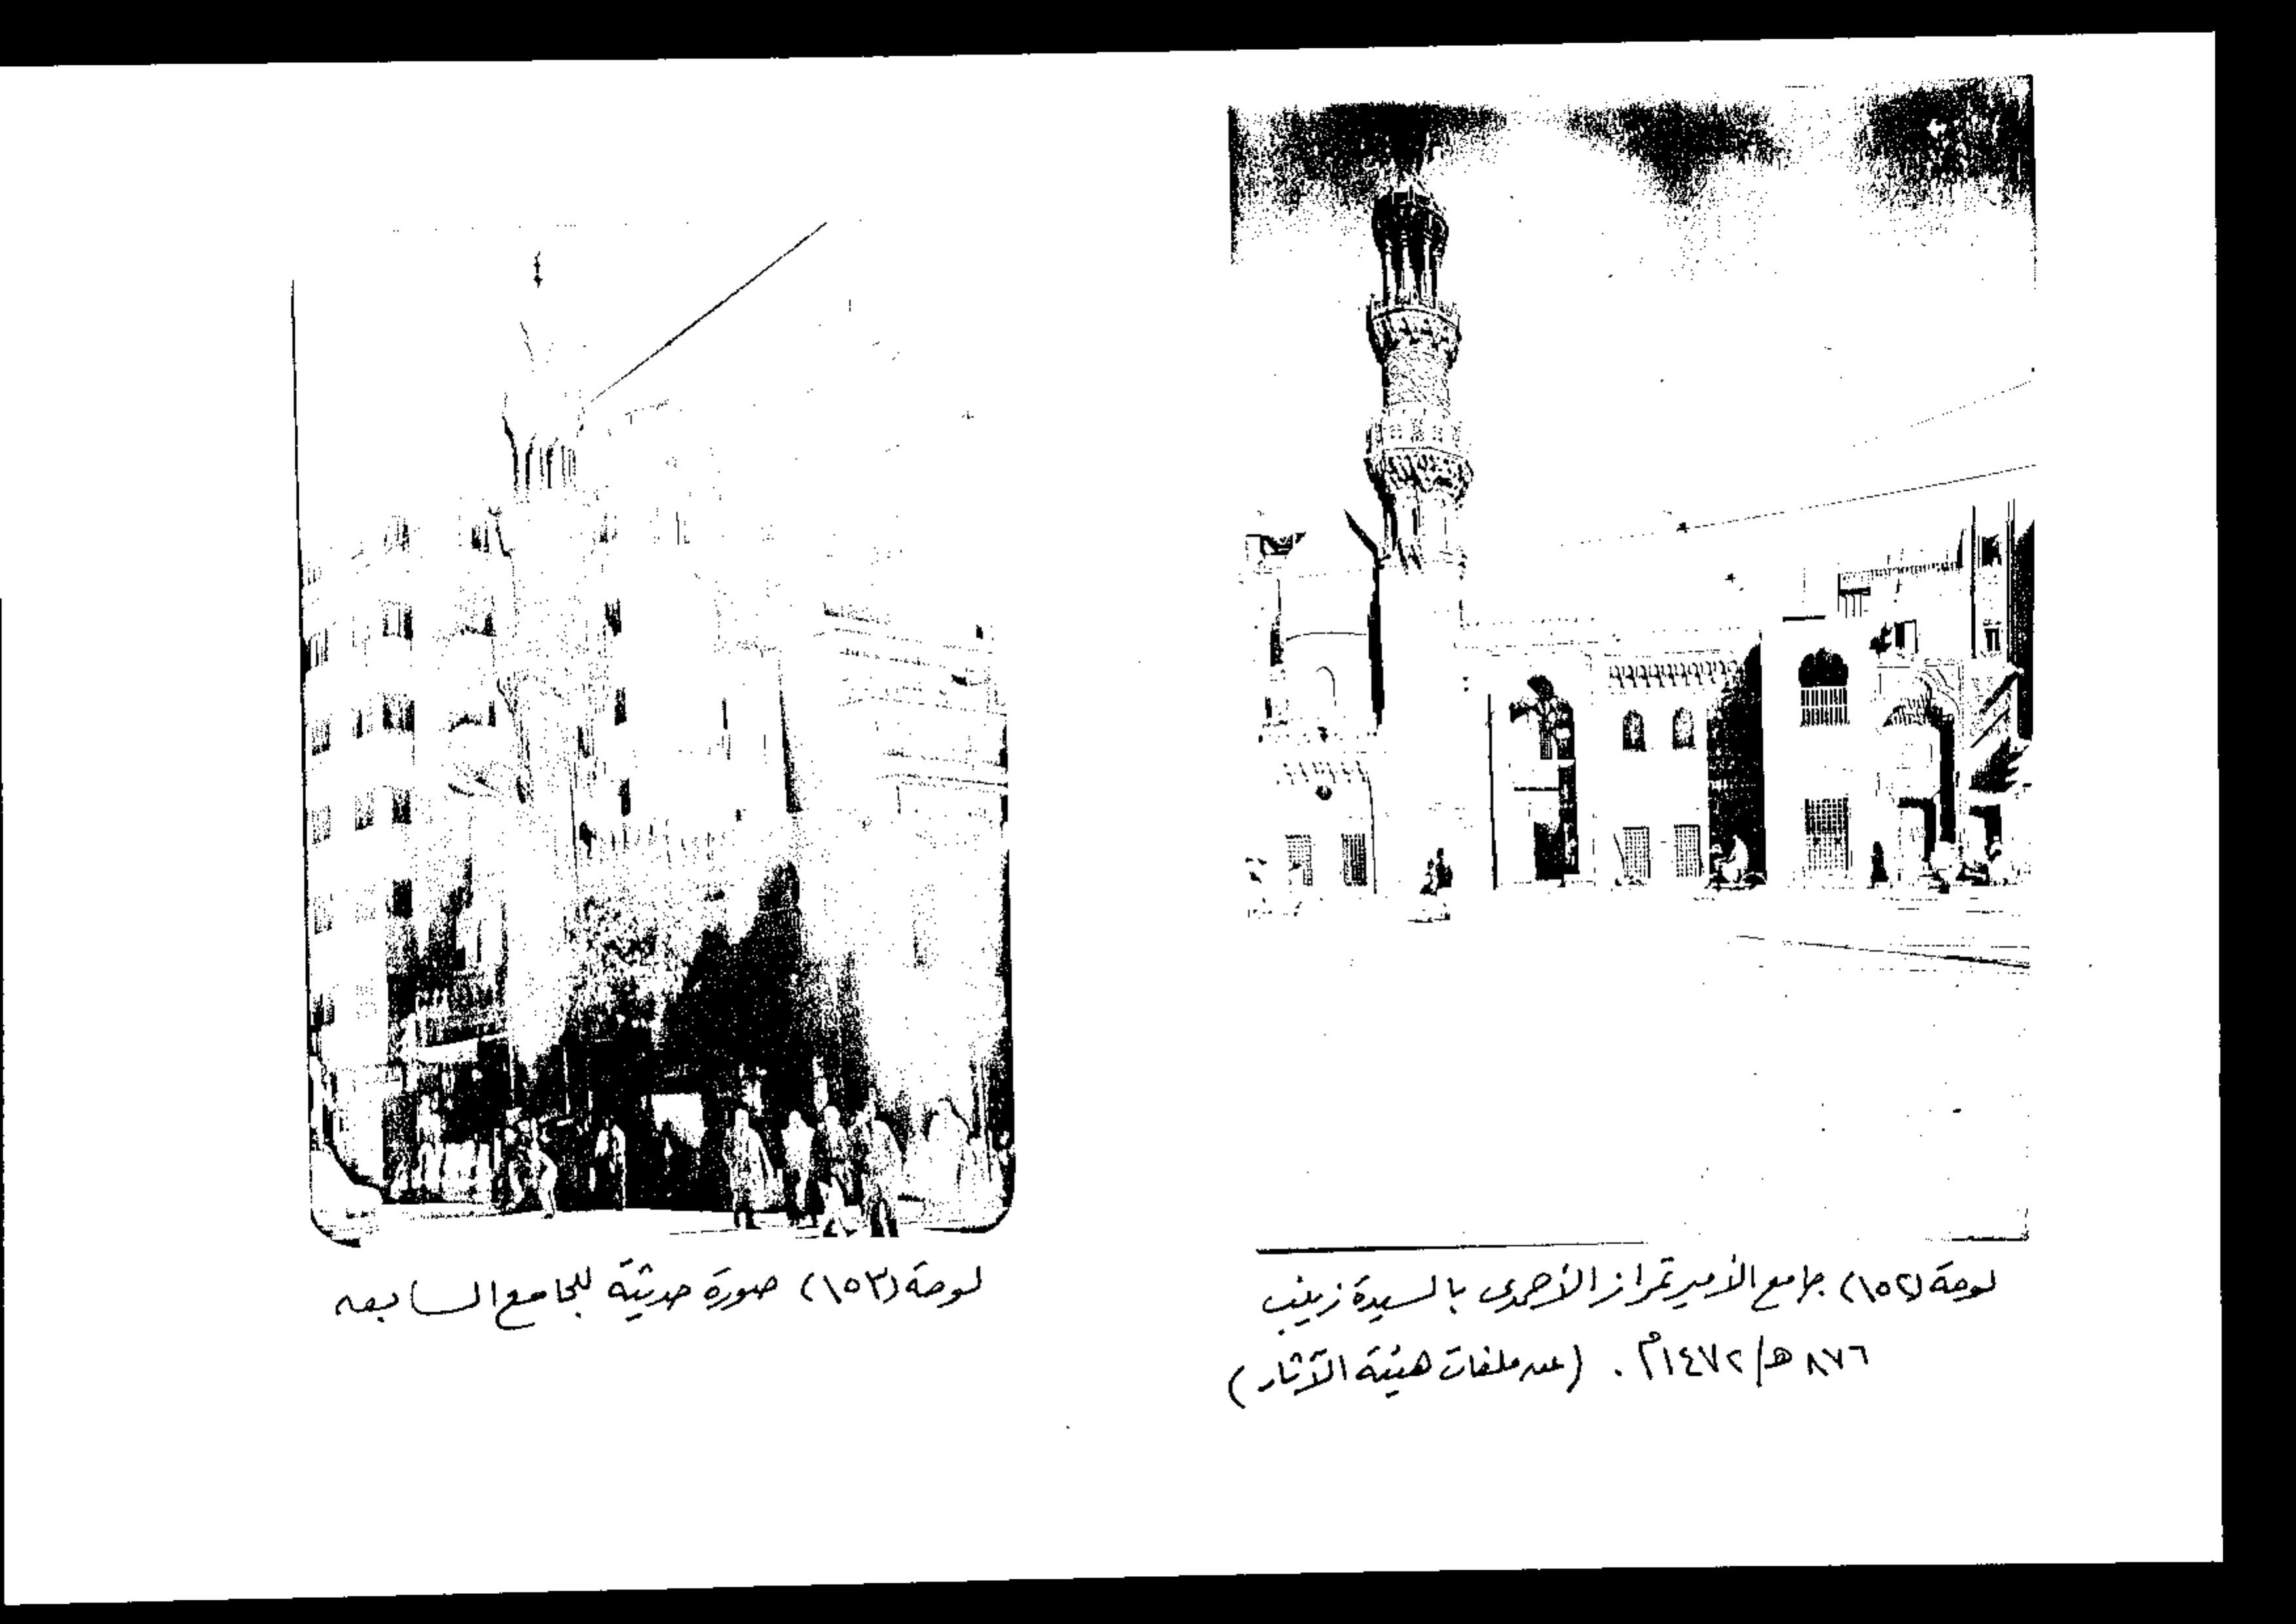 لوحة (١٥٢) جامع الأمير تمراز الأحمدى بالسيدة زينب
٨٧٦ هـ/١٤٧٢م . (عن ملفات هيئة الآثار)
لوحة (١٥٣) صورة حديثة للجامع السابق